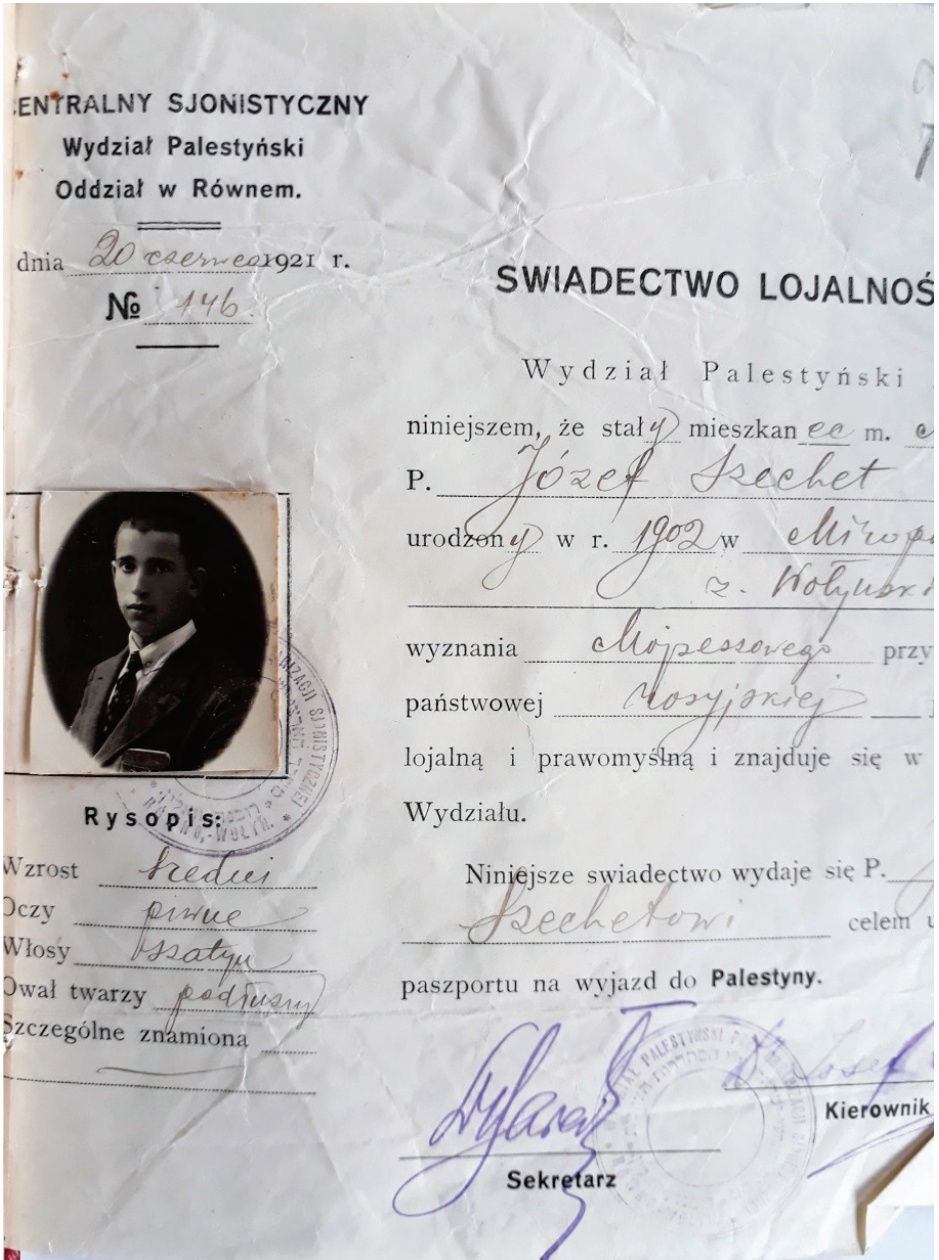 CENTRALNY SJONISTYCZNY
Wydział Palestyński
Oddział w Równem.
dnia 20 czerwca 1921 r.
№ 146.
SWIADECTWO LOJALNOŚ
Wydział Palestyński
niniejszem, że stały mieszkaniec m.
P. Józef Szechet
urodzony w r. 1902 w Miropo
z. Wołyński
wyznania Mojżeszowego przy
państwowej rosyjskiej
lojalną i prawomyślną i znajduje się w
Wydziału.
Niniejsze swiadectwo wydaje się P.
Szechetowi celem u
paszportu na wyjazd do Palestyny.
Rysopis:
Wzrost średni
Oczy piwne
Włosy szatyn
Owal twarzy podłużny
Szczególne znamiona
Sekretarz
Kierownik